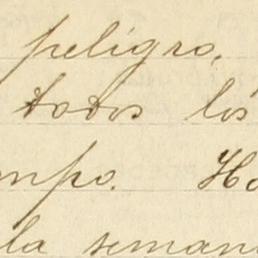 peligro.
todos los
mpo. Ha
la seman